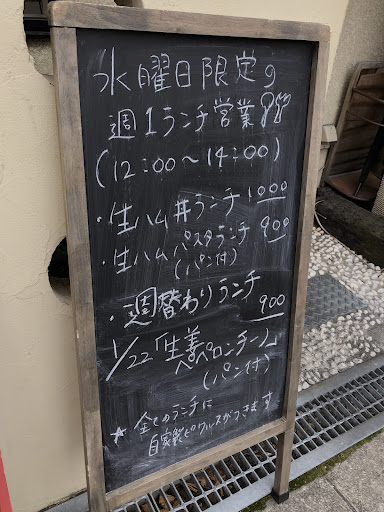 水曜日限定の
週1ランチ営業
(12:00〜14:00)
・生ハム丼ランチ 1000
・生ハムパスタランチ 900
(パン付)
・週替わりランチ
900
1/22「生姜ペペロンチーノ」
(パン付)
★全てのランチに
自家製ピクルスがつきます